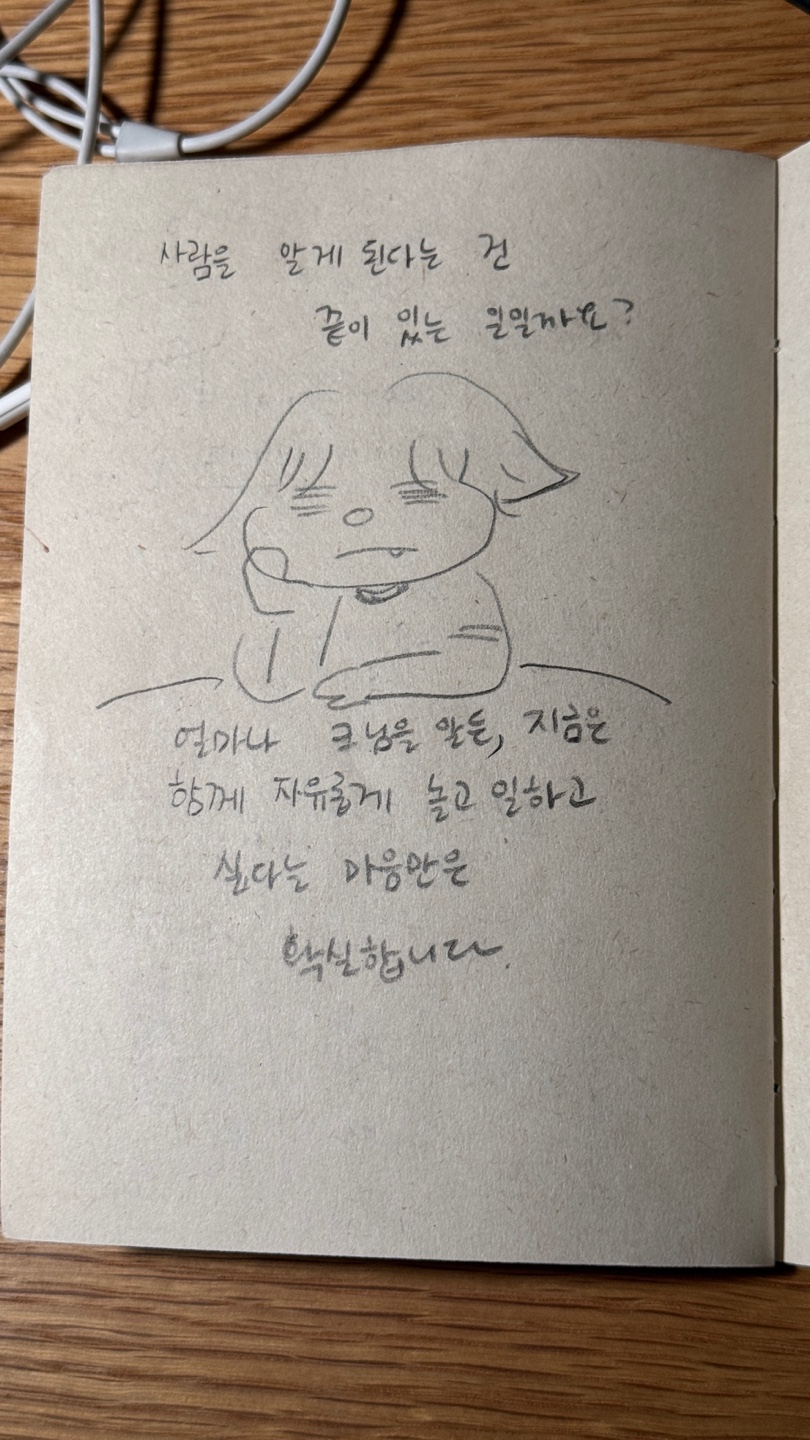 사람을 알게 된다는 건
끝이 있는 일일까요?
얼마나 크님을 알든, 지금은
함께 자유롭게 놀고 일하고
싶다는 마음만은
확실합니다.